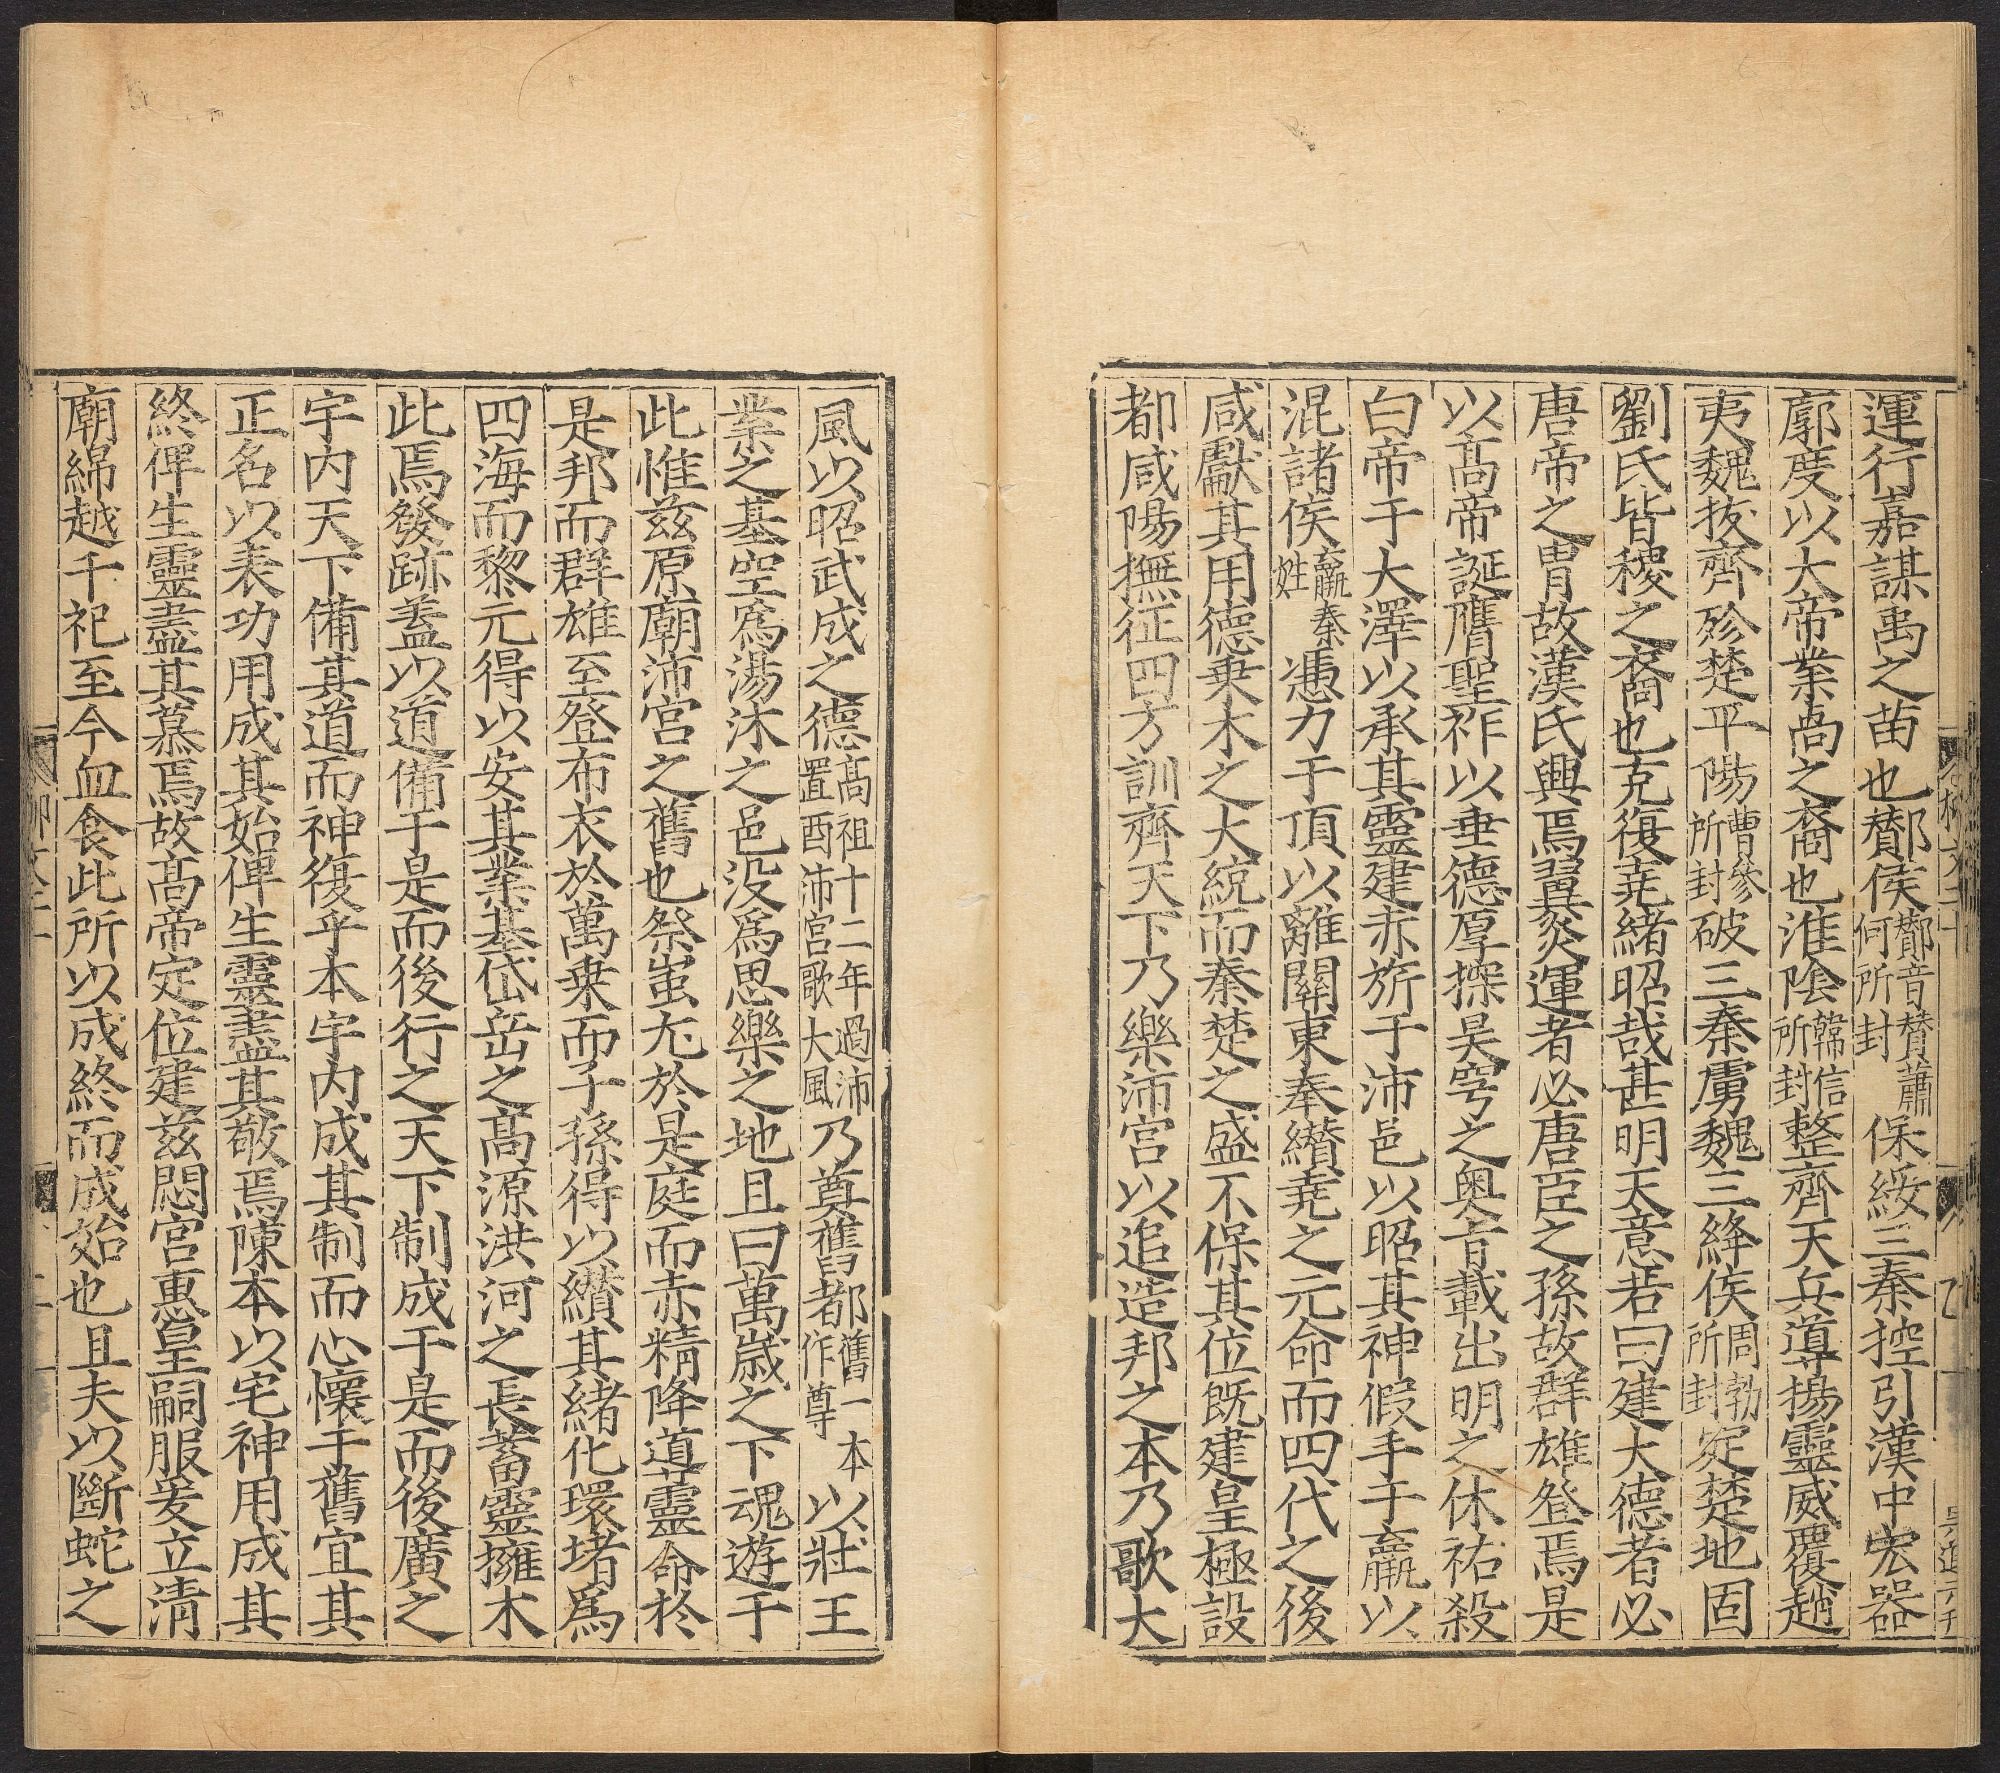 運行嘉謀禹之苗也酇侯酇音贊蕭何所封保綏三秦控引漢中宏器
廓度以大帝業卨之裔也淮陰韓信所封整齊天兵導揚靈威覆趙
夷魏拔齊殄楚平陽曹參所封破三秦虜魏王絳侯周勃所封定楚地固
劉氏皆稷之裔也克復堯緒昭哉甚明天意若曰建大德者必
唐帝之冑故漢氏興焉翼炎運者必唐臣之孫故群雄登焉是
以高帝誕膺聖祚以垂德厚探昊穹之奥旨載出明之休祐殺
白帝于大澤以承其靈建赤旂于沛邑以昭其神假手于嬴以
混諸侯嬴秦姓憑力于項以離關東奉纘堯之元命而四代之後
咸獻其用德乗木之大統而秦楚之盛不保其位既建皇極設
都咸陽撫征四方訓齊天下乃樂沛宫以追造邦之本乃歌大
風以昭武成之德高祖十二年過沛置酒沛宫歌大風乃奠舊都舊一本作尊以壯王
業之基空爲湯沐之邑没爲思樂之地且曰萬歳之下魂遊于
此惟兹原廟沛宫之舊也祭蚩尤於是庭而赤精降導靈命於
是邦而群雄至登布衣於萬乗而子孫得以纘其緒化環堵爲
四海而黎元得以安其業基岱岳之高源洪河之長蓄靈擁木
此焉發跡蓋以道備于是而後行之天下制成于是而後廣之
宇内天下備其道而神復乎本宇内成其制而心懷于舊宜其
正名以表功用成其始俾生靈盡其敬焉陳本以宅神用成其
終俾生靈盡其慕焉故高帝定位建兹閟宫惠皇嗣服爰立清
廟綿越千祀至今血食此所以成終而成始也且夫以斷蛇之